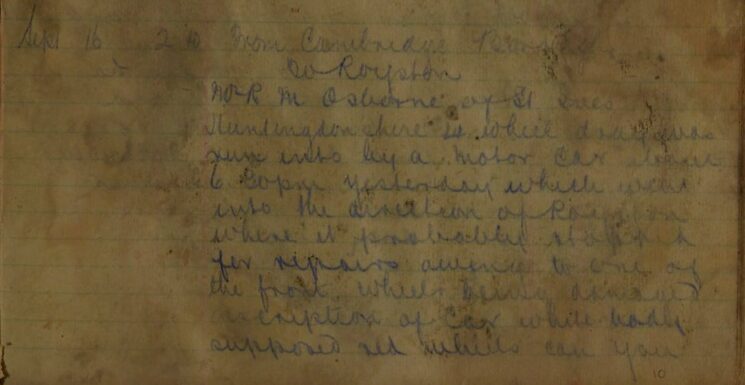 Sept 16 2 From Cambridge
To Royston
Mr R M Osborne of St Ives
Huntingdonshire 4 wheel dray was
run into by a Motor Car about
6 30pm yesterday which went
into the direction of Royston
where it probably stopped
for repairs owing to one of
the front wheels being damaged
description of Car white body
supposed red wheels can you
10